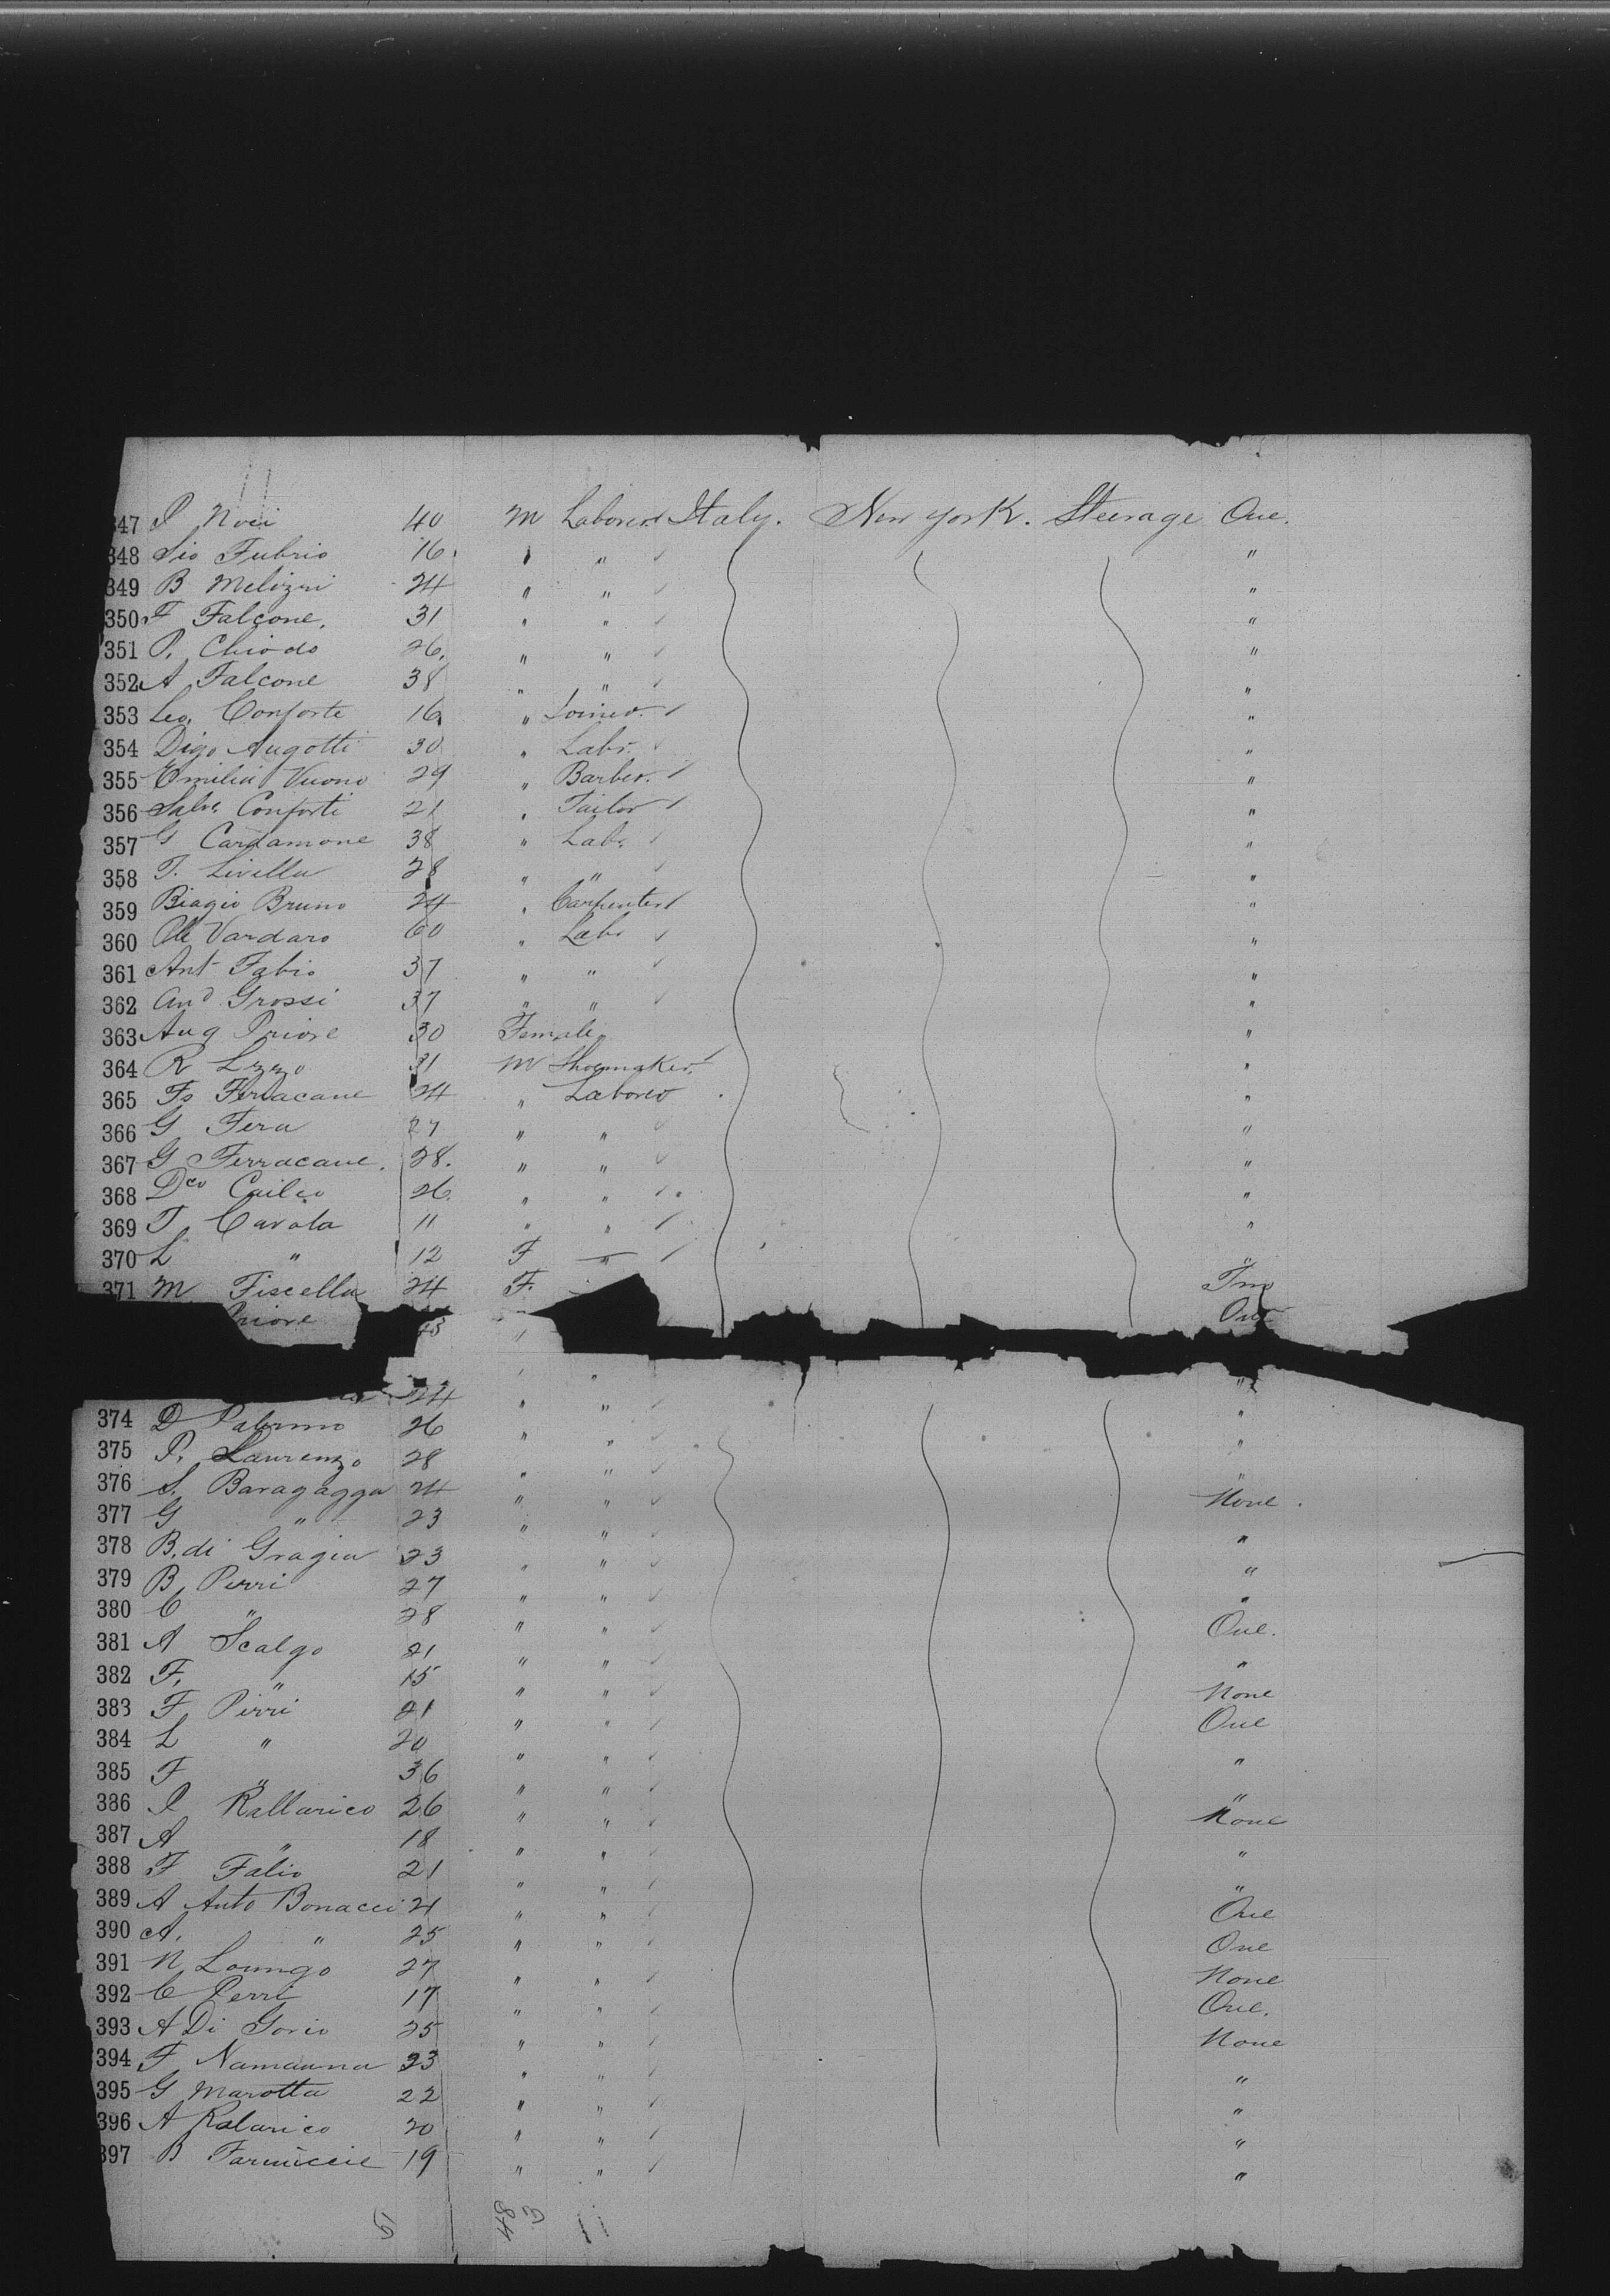 347 P Noci 40 M Laborer Italy. New York. Steerage One.
348 Fubrio 16. " " "
349 B Melizzi 24 " " "
350 F Falcone. 31 " " "
351 P. Chiodo 26. " " "
352 A Falcone 38 " " "
353 Leo. Conforte 16 " Joiner. "
354 Digo Augotti 30 " Labr. "
355 Emilia Vuono 29 " Barber. "
356 Salv. Conforti 21 " Tailor "
357 G Cardamone 38 " Labr "
358 T. Livella 28 " " "
359 Biagio Bruno 24 " Carpenter "
360 Vardaro 60 " Labr "
361 Ant Fabio 37 " " "
362 And Grossi 37 " " "
363 Aug Priore 30 Female "
364 R Izzo 31 M Shoemaker. "
365 Fs Ferracane 24 " Laborer "
366 G Fera 27 " " "
367 G Ferracane. 28. " " "
368 Dco 26. " " "
369 T Carola 11 " " "
370 L " 12 F " "
371 M Fiscella 24 F. Two
Priore One
" "
24 " " "
374 D Palermo 26 " " "
375 P. Laurenzo 28 " " "
376 S. Baragagga 24 " " None.
377 G " 23 " " "
378 B. di Gragia 23 " " "
379 B Perri 27 " " "
380 C " 28 " " One.
381 A Scalgo 21 " " "
382 F. " 15 " " None
383 F Pirri 21 " " One
384 L " 20 " " "
385 F " 36 " " "
386 P Rallarico 26 " " None
387 A " 18 " " "
388 F Falio 21 " " "
389 A Anto Bonacci 21 " " One
390 A. " 25 " " One
391 N Loungo 27 " " None
392 C Perri 17 " " One.
393 A Di Gorio 25 " " None
394 F Namanna 23 " " "
395 G Marotta 22 " " "
396 A Ralarico 20 " " "
397 B 19 " " "